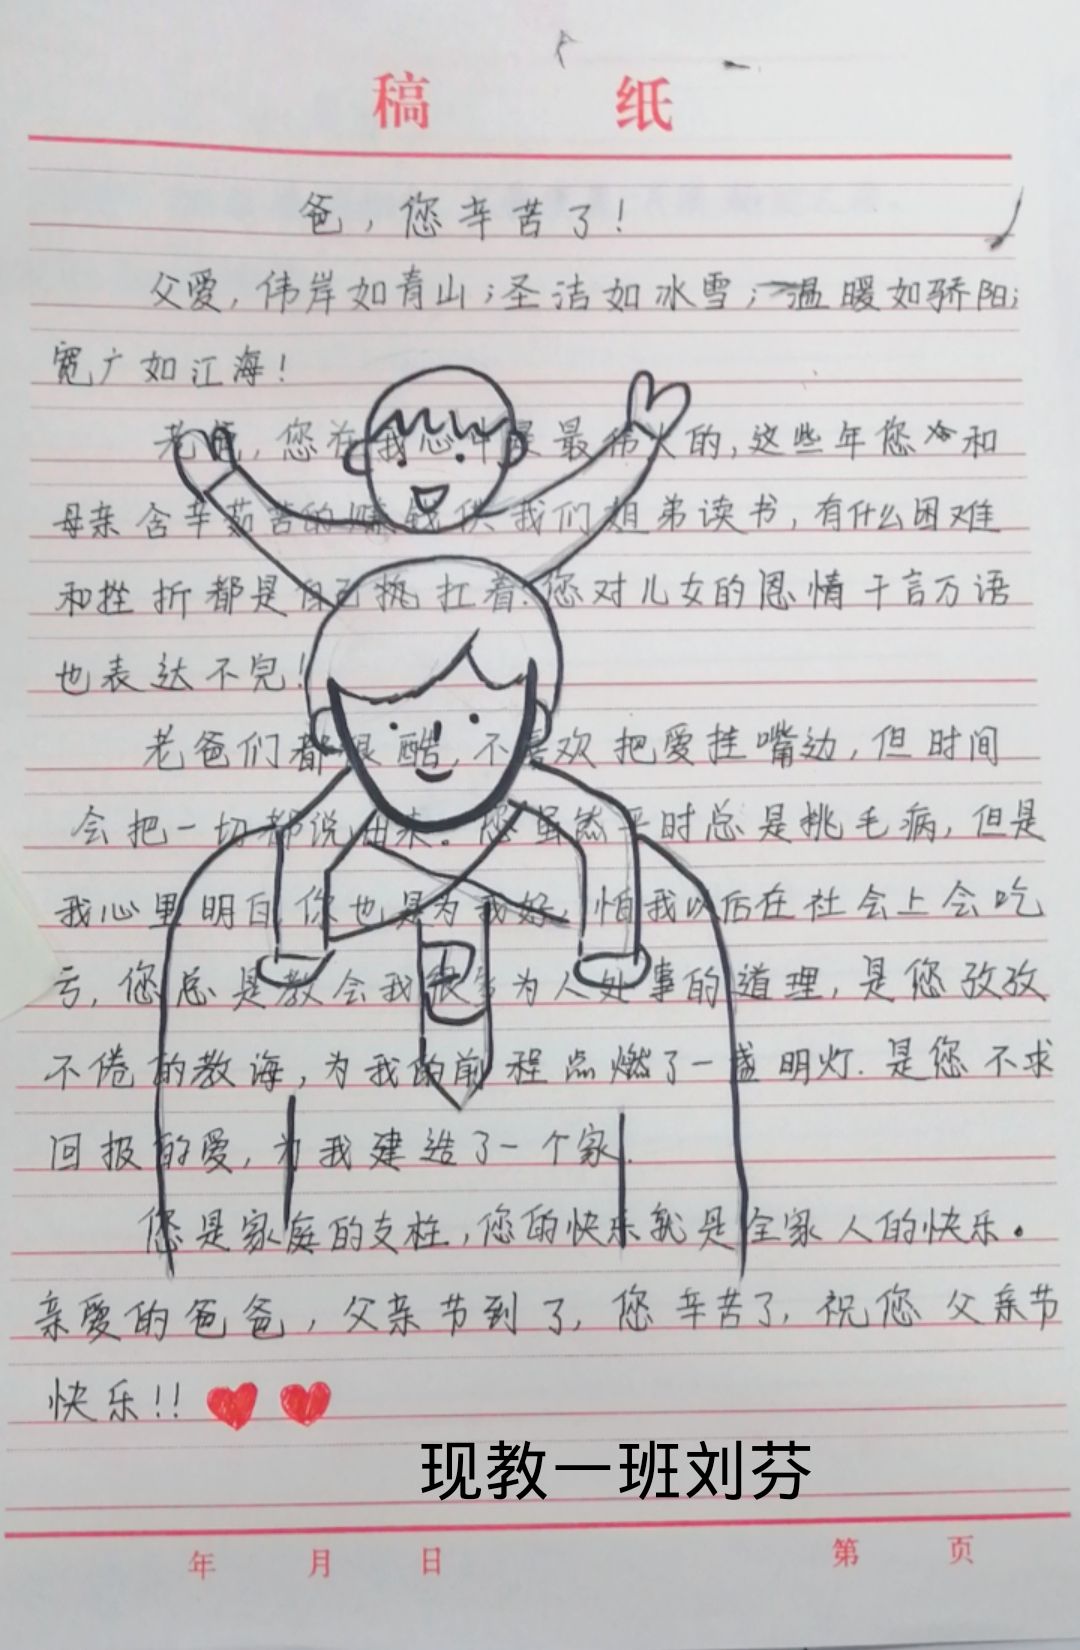 稿 纸
爸，您辛苦了！
父爱，伟岸如青山；圣洁如冰雪；温暖如骄阳；
宽广如江海！
老爸，您在我心中是最伟大的，这些年您和
母亲含辛茹苦的赚钱供我们姐弟读书，有什么困难
和挫折都是自己扛着.您对儿女的恩情千言万语
也表达不完！
老爸们都很酷，不喜欢把爱挂嘴边，但时间
会把一切都说出来。您虽然平时总是挑毛病，但是
我心里明白你也是为我好，怕我以后在社会上会吃
亏，您总是教会我很多为人处事的道理，是您孜孜
不倦的教诲，为我的前程点燃了一盏明灯.是您不求
回报的爱，为我建造了一个家.
您是家庭的支柱，您的快乐就是全家人的快乐。
亲爱的爸爸，父亲节到了，您辛苦了，祝您父亲节
快乐！！
现教一班刘芬
年 月 日 第 页